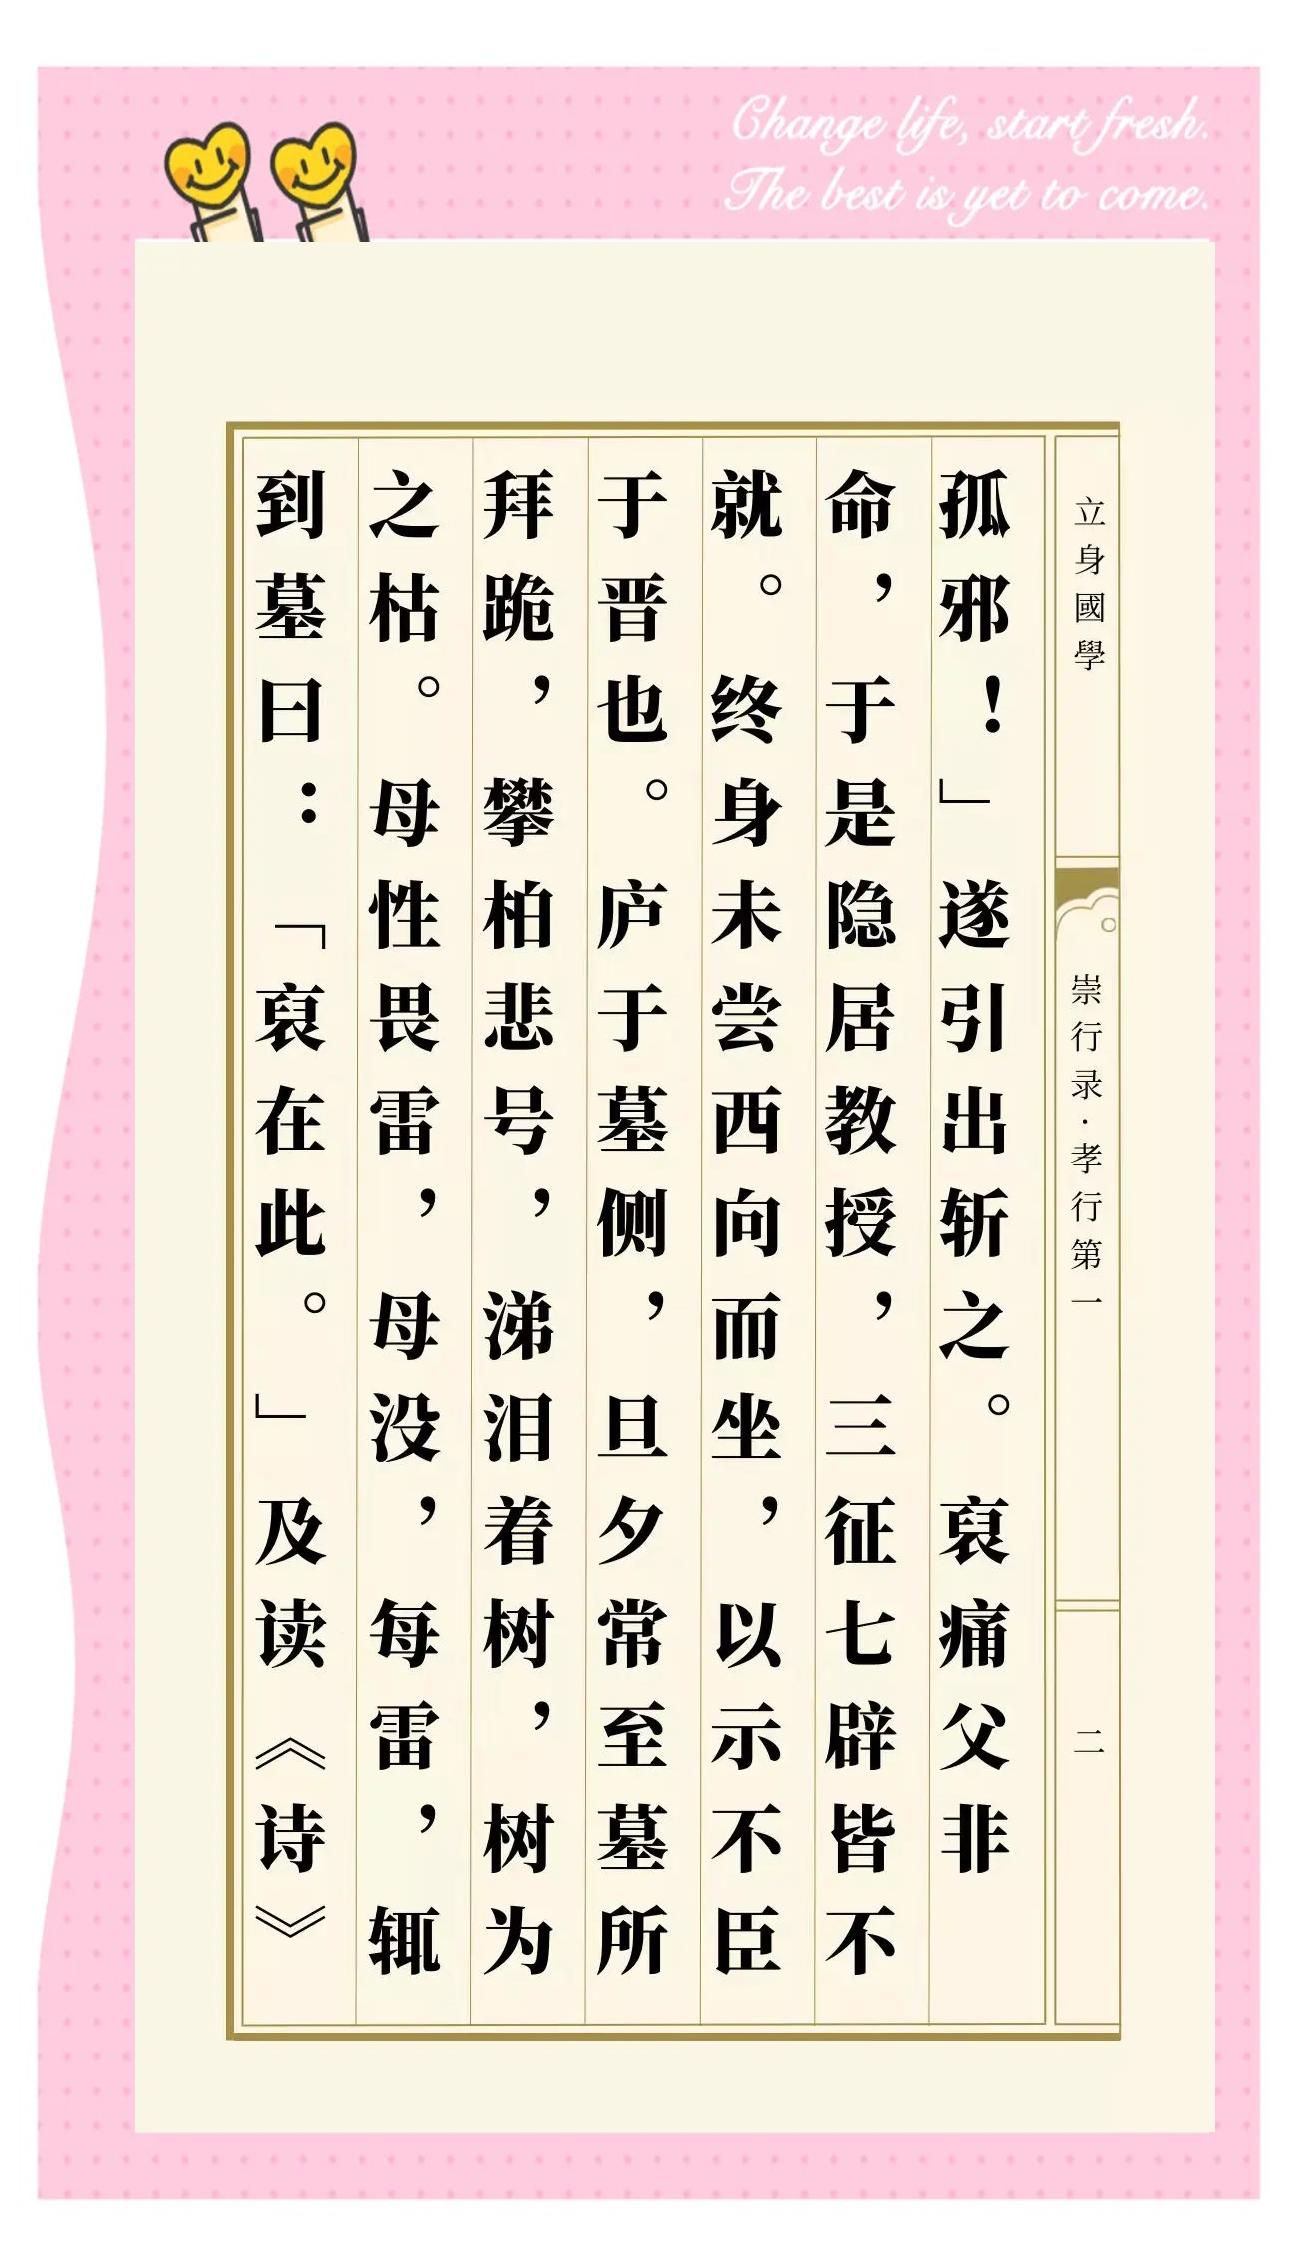 Change life, start fresh.
The best is yet to come.
立身國學
崇行录·孝行第一
二
孤邪！」遂引出斩之。哀痛父非
命，于是隐居教授，三征七辟皆不
就。终身未尝西向而坐，以示不臣
于晋也。庐于墓侧，旦夕常至墓所
拜跪，攀柏悲号，涕泪着树，树为
之枯。母性畏雷，母没，每雷，辄
到墓曰：「裒在此。」及读《诗》